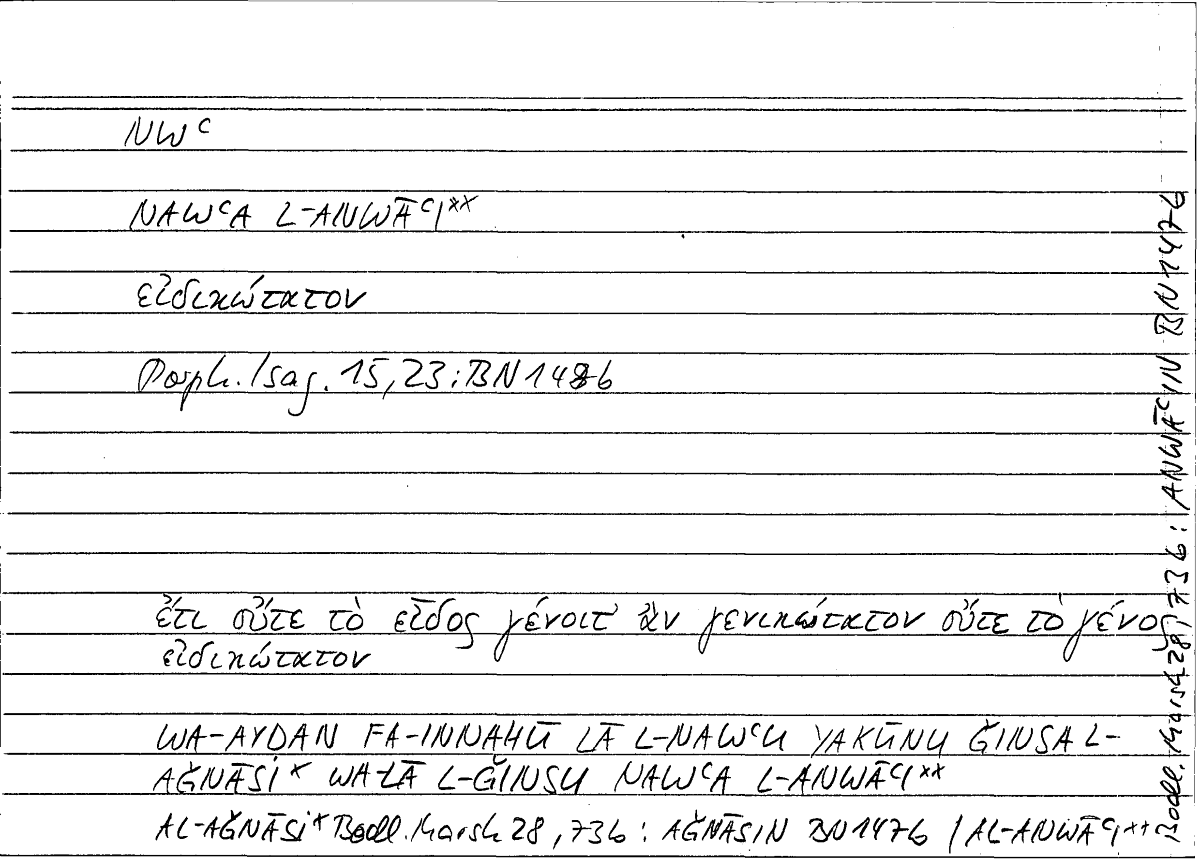 NWᶜ
NAWᶜA L-ANWĀᶜI**
εἰδικώτατον
Porph. Isag. 15, 23: BN 148b
ἔτι οὔτε τὸ εἶδος γένοιτ' ἂν γενικώτατον οὔτε τὸ γένος
εἰδικώτατον
WA-AYDAN FA-INNAHŪ LĀ L-NAWᶜU YAKŪNU ǦINSA L-
AǦNĀSI* WA-LĀ L-ǦINSU NAWᶜA L-ANWĀᶜI**
AL-AǦNĀSI* Bodl. Marsh 28, 73b: AǦNĀSIN BN 147b / AL-ANWĀᶜI**
Bodl. Marsh 28, 73b: ANWĀᶜIN BN 147b